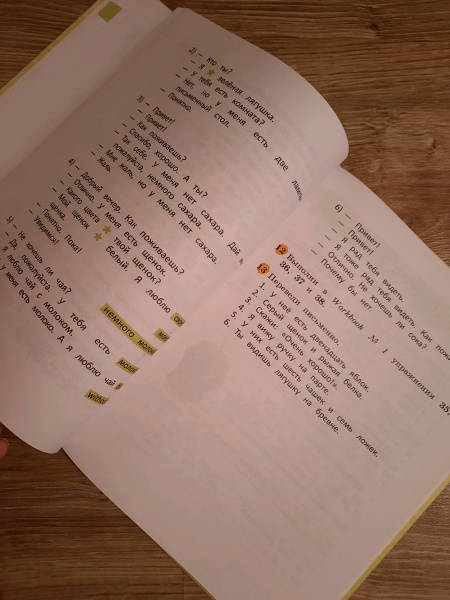 2) — Кто ты?
— Я ★ зелёная лягушка.
— У тебя есть комната?
— Нет, но у меня есть две
письменный стол.
— Понятно.
3) — Привет!
— Привет!
— Как поживаешь?
— Спасибо, хорошо. А ты?
— Так себе. У меня нет сахара. Дай
пожалуйста, немного сахара.
— Мне жаль, но у меня нет сахара.
— Жаль.
4) — Добрый вечер. Как поживаешь?
— Отлично. У меня есть щенок.
— Какого цвета ★ твой щенок?
— Мой щенок ★ белый. Я люблю
щенка.
— Понятно. Пока!
— Увидимся!
5) — Не хочешь ли чая?
— Да, пожалуйста. У тебя есть
люблю чай с молоком.
У меня есть молоко. А я люблю чай
немного
6) — Привет!
— Привет!
— Я рад тебя видеть.
— Я тоже рад тебя видеть. Как
— Отлично. Не хочешь ли сока?
— Почему бы нет.
12 Выполни в Workbook № 1 упражнения 35,
36, 37 и 38.
13 Переведи письменно.
1. У неё есть двенадцать яблок.
2. Серый щенок и рыжая белка.
3. Скажи: «Очень хорошо!».
4. Я вижу ручку на парте.
5. У них есть шесть чашек и семь ложек.
6. Ты видишь лягушку на бревне.